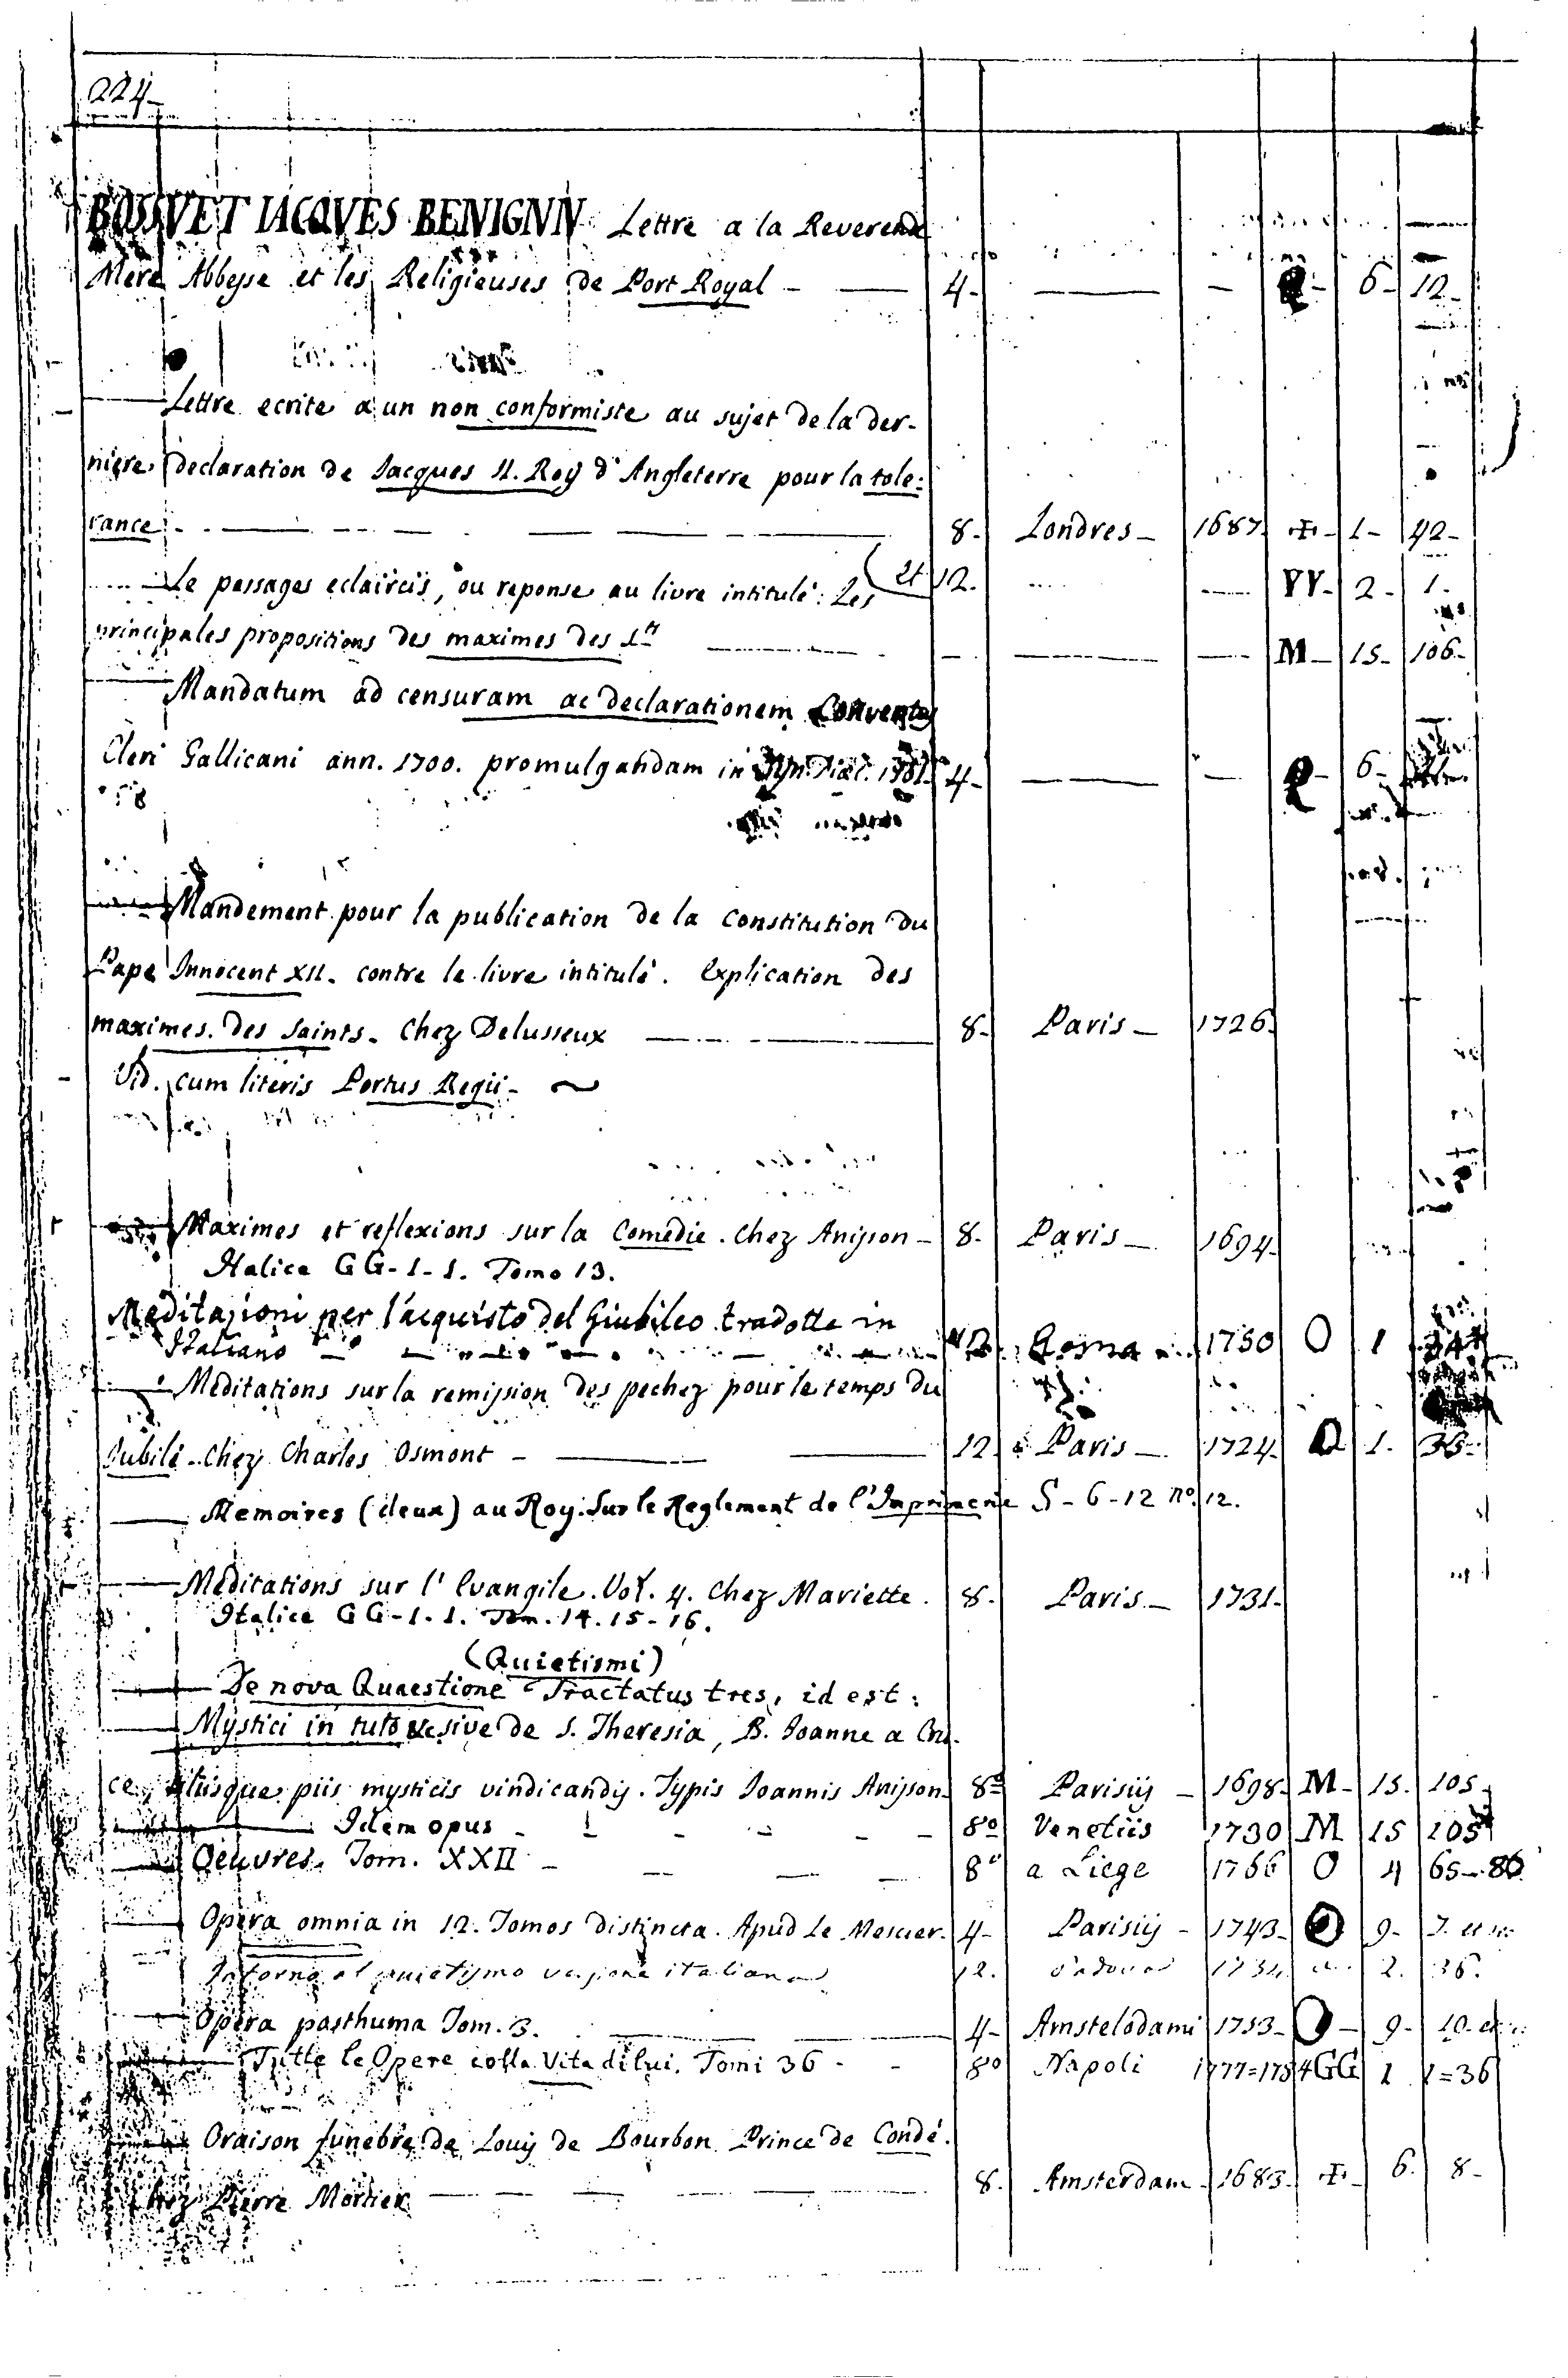 224-
BOSSVET IACQVES BENIGNN Lettre a la Reverende
Mere Abbesse et les Religieuses de Port Royal - — 4- — — - 6- 12-
— Lettre ecrite a un non conformiste au sujet de la der-
niere declaration de Jacques II. Roy d'Angleterre pour la tole:
rance - — 8- Londres - 1687. ✠ - 1- 42-
— Le passages eclaircis, ou reponse au livre intitulé: Les (et 12. — VV- 2- 1.
principales propositions des maximes des Sts — - — — M- 15- 106-
— Mandatum ad censuram ac declarationem Conventus
Cleri Gallicani ann. 1700. promulgandam in 4- — — 6-
— Mandement pour la publication de la constitution du
Pape Innocent XII. contre le livre intitulé. Explication des
maximes des Saints. Chez Delusseux — 8- Paris - 1726.
Vid. cum literis Portus Regii - ~
— Maximes et reflexions sur la Comedie. Chez Anisson - 8- Paris - 1694-
Italice GG-1-1. Tomo 13.
Meditazioni per l'acquisto del Giubileo tradotte in
Italiano — Roma 1750 O 1
— Meditations sur la remission des pechez pour le temps du
Jubilé. Chez Charles Osmont - — 12. Paris - 1724. 1. 36-
— Memoires (deux) au Roy. Sur le Reglement de l'Imprimerie S-6-12 no. 12.
— Meditations sur l'Evangile. Vol. 4. Chez Mariette. 8. Paris - 1731-
Italice GG-1.1. Tom. 14. 15-16.
(Quietismi)
— De nova Quaestione Tractatus tres, id est:
— Mystici in tuto sive de S. Theresia, B. Joanne a Cru-
ce, aliisque piis mysticis vindicandis. Typis Joannis Anisson 8º Parisiis - 1698- M- 15. 105-
— Idem opus - 8º Venetiis 1730 M 15 105
— Oeuvres. Tom. XXII - 8º a Liege 1766 O 4 65-86
— Opera omnia in 12. Tomos distincta. Apud Le Mercier. 4- Parisiis - 1743- 9- 7. et
Intorno al quietismo versione italiana 12. Padova 2. 36.
— Opera posthuma Tom. 3. — 4- Amstelodami 1753- O - 9- 10. et
— Tutte le Opere colla Vita di lui. Tomi 36 - - 8º Napoli 1777=1784 GG 1 1=36
— Oraison funebre de Louis de Bourbon Prince de Condé.
Chez Pierre Mortier — 8. Amsterdam - 1683- ✠ - 6. 8-